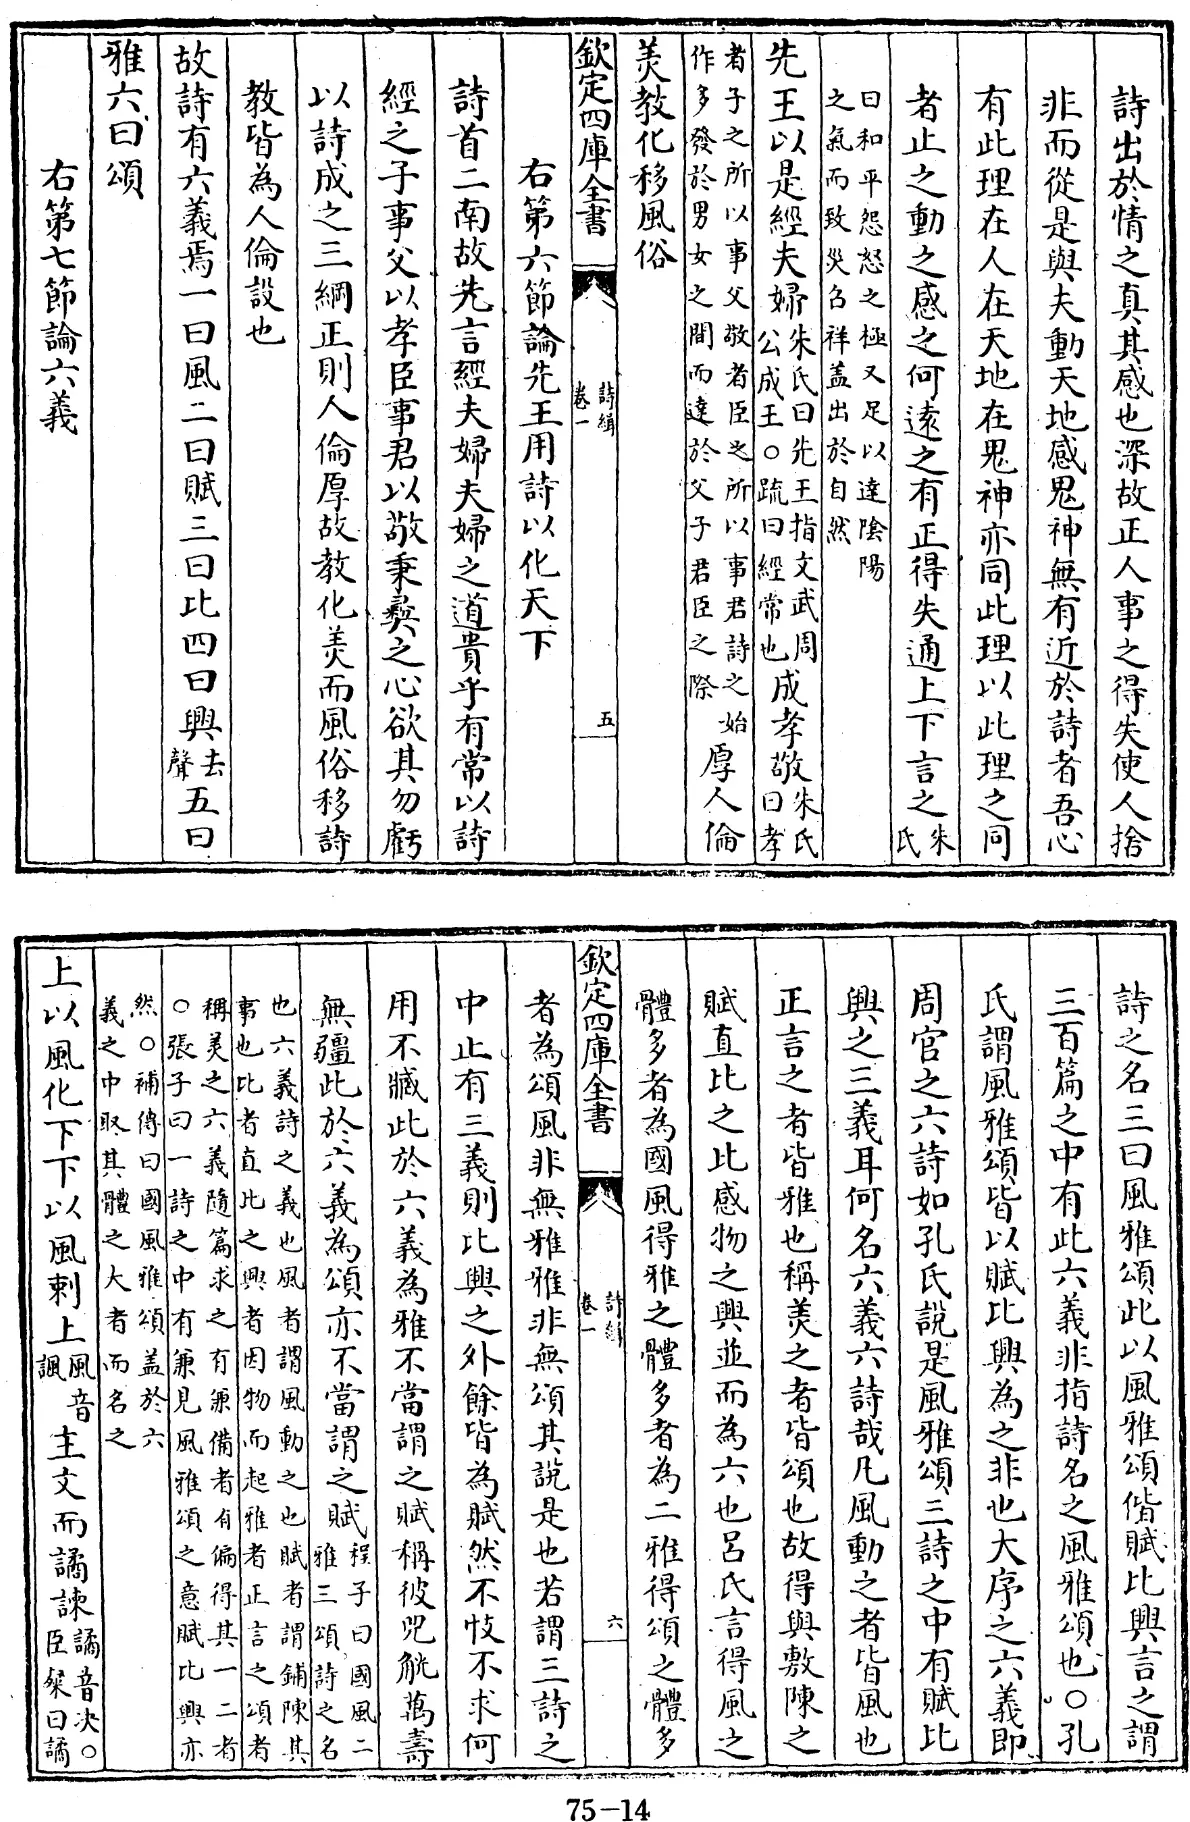 詩出於情之真其感也深故正人事之得失使人捨
非而從是與夫動天地感鬼神無有近於詩者吾心
有此理在人在天地在鬼神亦同此理以此理之同
者止之動之感之何遠之有正得失通上下言之朱氏
曰和平怨怒之極又足以達陰陽
之氣而致災召祥盖出於自然
先王以是經夫婦朱氏曰先王指文武周公成王○疏曰經常也成孝敬朱氏曰孝
者子之所以事父敬者臣之所以事君詩之始作多發於男女之間而達於父子君臣之際厚人倫
羙教化移風俗
欽定四庫全書
詩緝
卷一
五
右第六節論先王用詩以化天下
詩首二南故先言經夫婦夫婦之道貴乎有常以詩
經之子事父以孝臣事君以敬秉彛之心欲其勿虧
以詩成之三綱正則人倫厚故教化羙而風俗移詩
教皆為人倫設也
故詩有六義焉一曰風二曰賦三曰比四曰興去聲五曰
雅六曰頌
右第七節論六義
詩之名三曰風雅頌此以風雅頌偕賦比興言之謂
三百篇之中有此六義非指詩名之風雅頌也○孔
氏謂風雅頌皆以賦比興為之非也大序之六義即
周官之六詩如孔氏說是風雅頌三詩之中有賦比
興之三義耳何名六義六詩哉凡風動之者皆風也
正言之者皆雅也稱羙之者皆頌也故得與敷陳之
賦直比之比感物之興並而為六也呂氏言得風之
體多者為國風得雅之體多者為二雅得頌之體多
欽定四庫全書
詩緝
卷一
六
者為頌風非無雅雅非無頌其說是也若謂三詩之
中止有三義則比興之外餘皆為賦然不忮不求何
用不臧此於六義為雅不當謂之賦稱彼兕觥萬壽
無疆此於六義為頌亦不當謂之賦程子曰國風二雅三頌詩之名
也六義詩之義也風者謂風動之也賦者謂鋪陳其
事也比者直比之興者因物而起雅者正言之頌者
稱美之六義隨篇求之有兼備者有偏得其一二者
○張子曰一詩之中有兼見風雅頌之意賦比興亦
然○補傳曰國風雅頌盖於六
義之中取其體之大者而名之
上以風化下下以風刺上風音諷主文而譎諫譎音决○臣粲曰譎
75-14